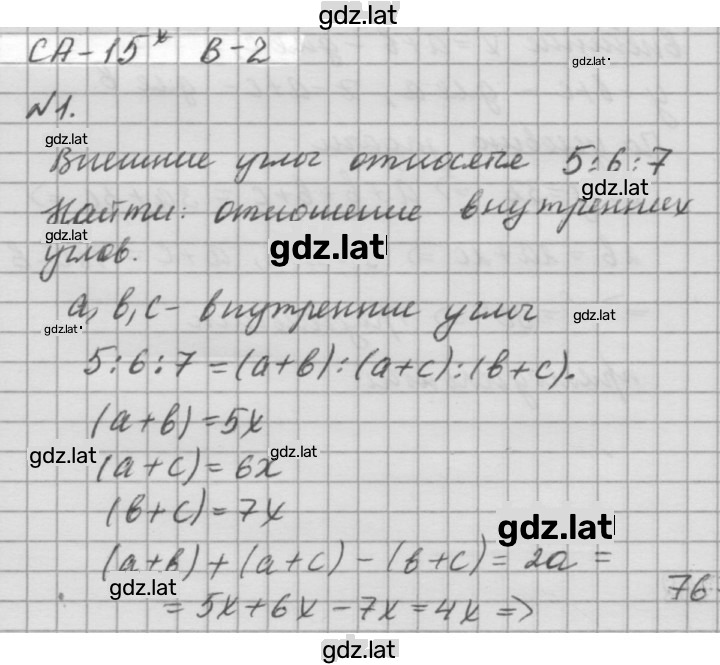 gdz.lat
СА-15* В-2
gdz.lat
№1.
gdz.lat
Внешние углы относятся 5:6:7
gdz.lat
Найти: отношение внутренних
gdz.lat
углов.
gdz.lat
a, в, c - внутренние углы
gdz.lat
gdz.lat
5:6:7 = (a+в):(a+c):(в+c).
(a+в) = 5x
gdz.lat
(a+c) = 6x
gdz.lat
(в+c) = 7x
gdz.lat
(a+в) + (a+c) - (в+c) = 2a =
gdz.lat
= 5x+6x-7x=4x =>
76
gdz.lat